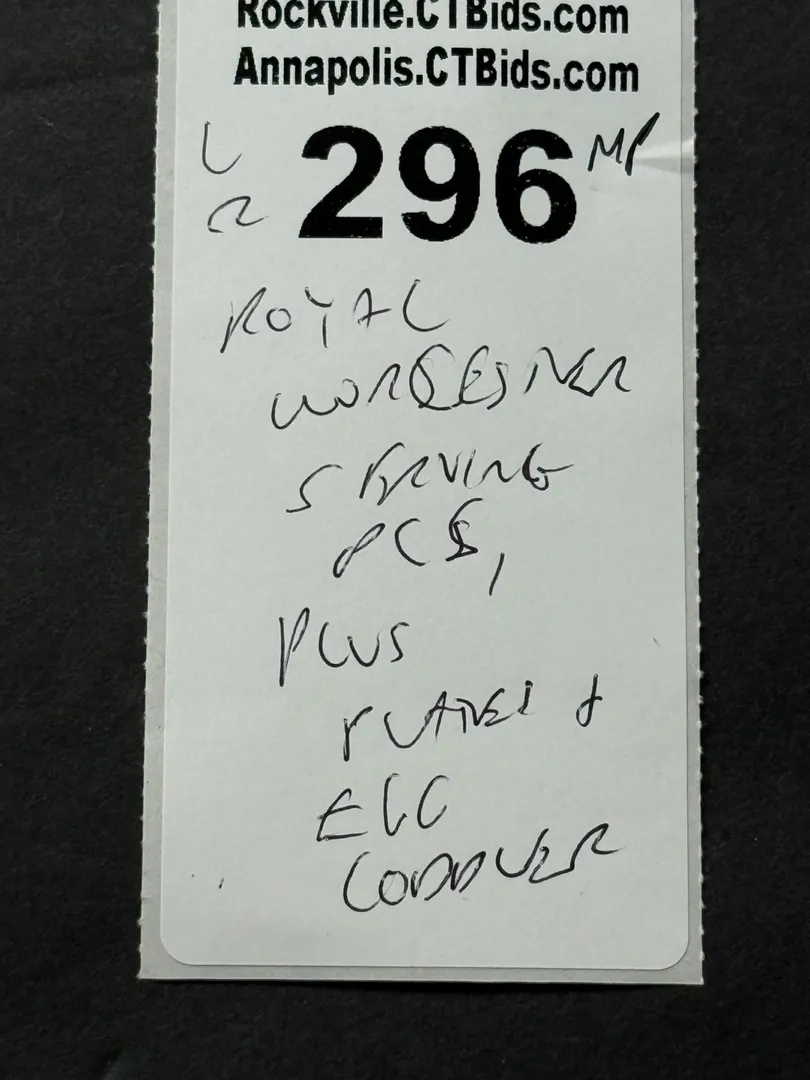 Rockville.CTBids.com
Annapolis.CTBids.com
L
R
296 MP
ROYAL
WORCESTER
SERVING
PCS,
PLUS
PLATES &
EGG
CODDLER